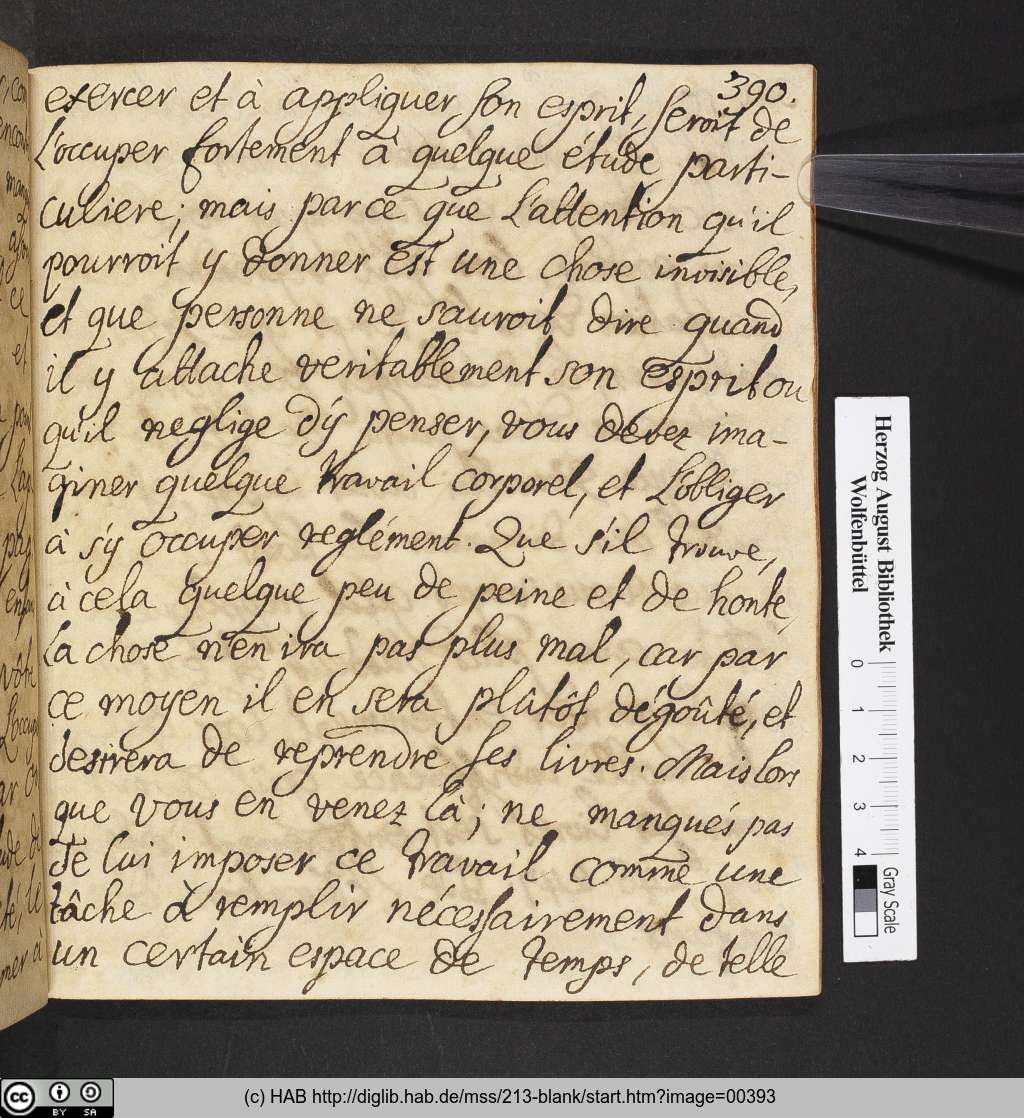 390.
exercer et à appliquer son esprit, seroit de
l'occuper fortement à quelque étude parti-
culiere; mais parce que l'attention qu'il
pourroit y donner est une chose invisible,
et que personne ne sauroit dire quand
il y attache veritablement son esprit ou
qu'il neglige d'y penser, vous devez ima-
giner quelque travail corporel, et l'obliger
à s'y occuper reglément. Que s'il trouve,
à cela quelque peu de peine et de honte,
la chose n'en ira pas plus mal, car par
ce moyen il en sera plûtôt dégoûté, et
desirera de reprendre ses livres. Mais lors
que vous en venez là; ne manqués pas
de lui imposer ce travail comme une
tâche à remplir nécessairement dans
un certain espace de temps, de telle
Herzog August Bibliothek
Wolfenbüttel
0 1 2 3 4
Gray Scale
cc BY SA
(c) HAB http://diglib.hab.de/mss/213-blank/start.htm?image=00393